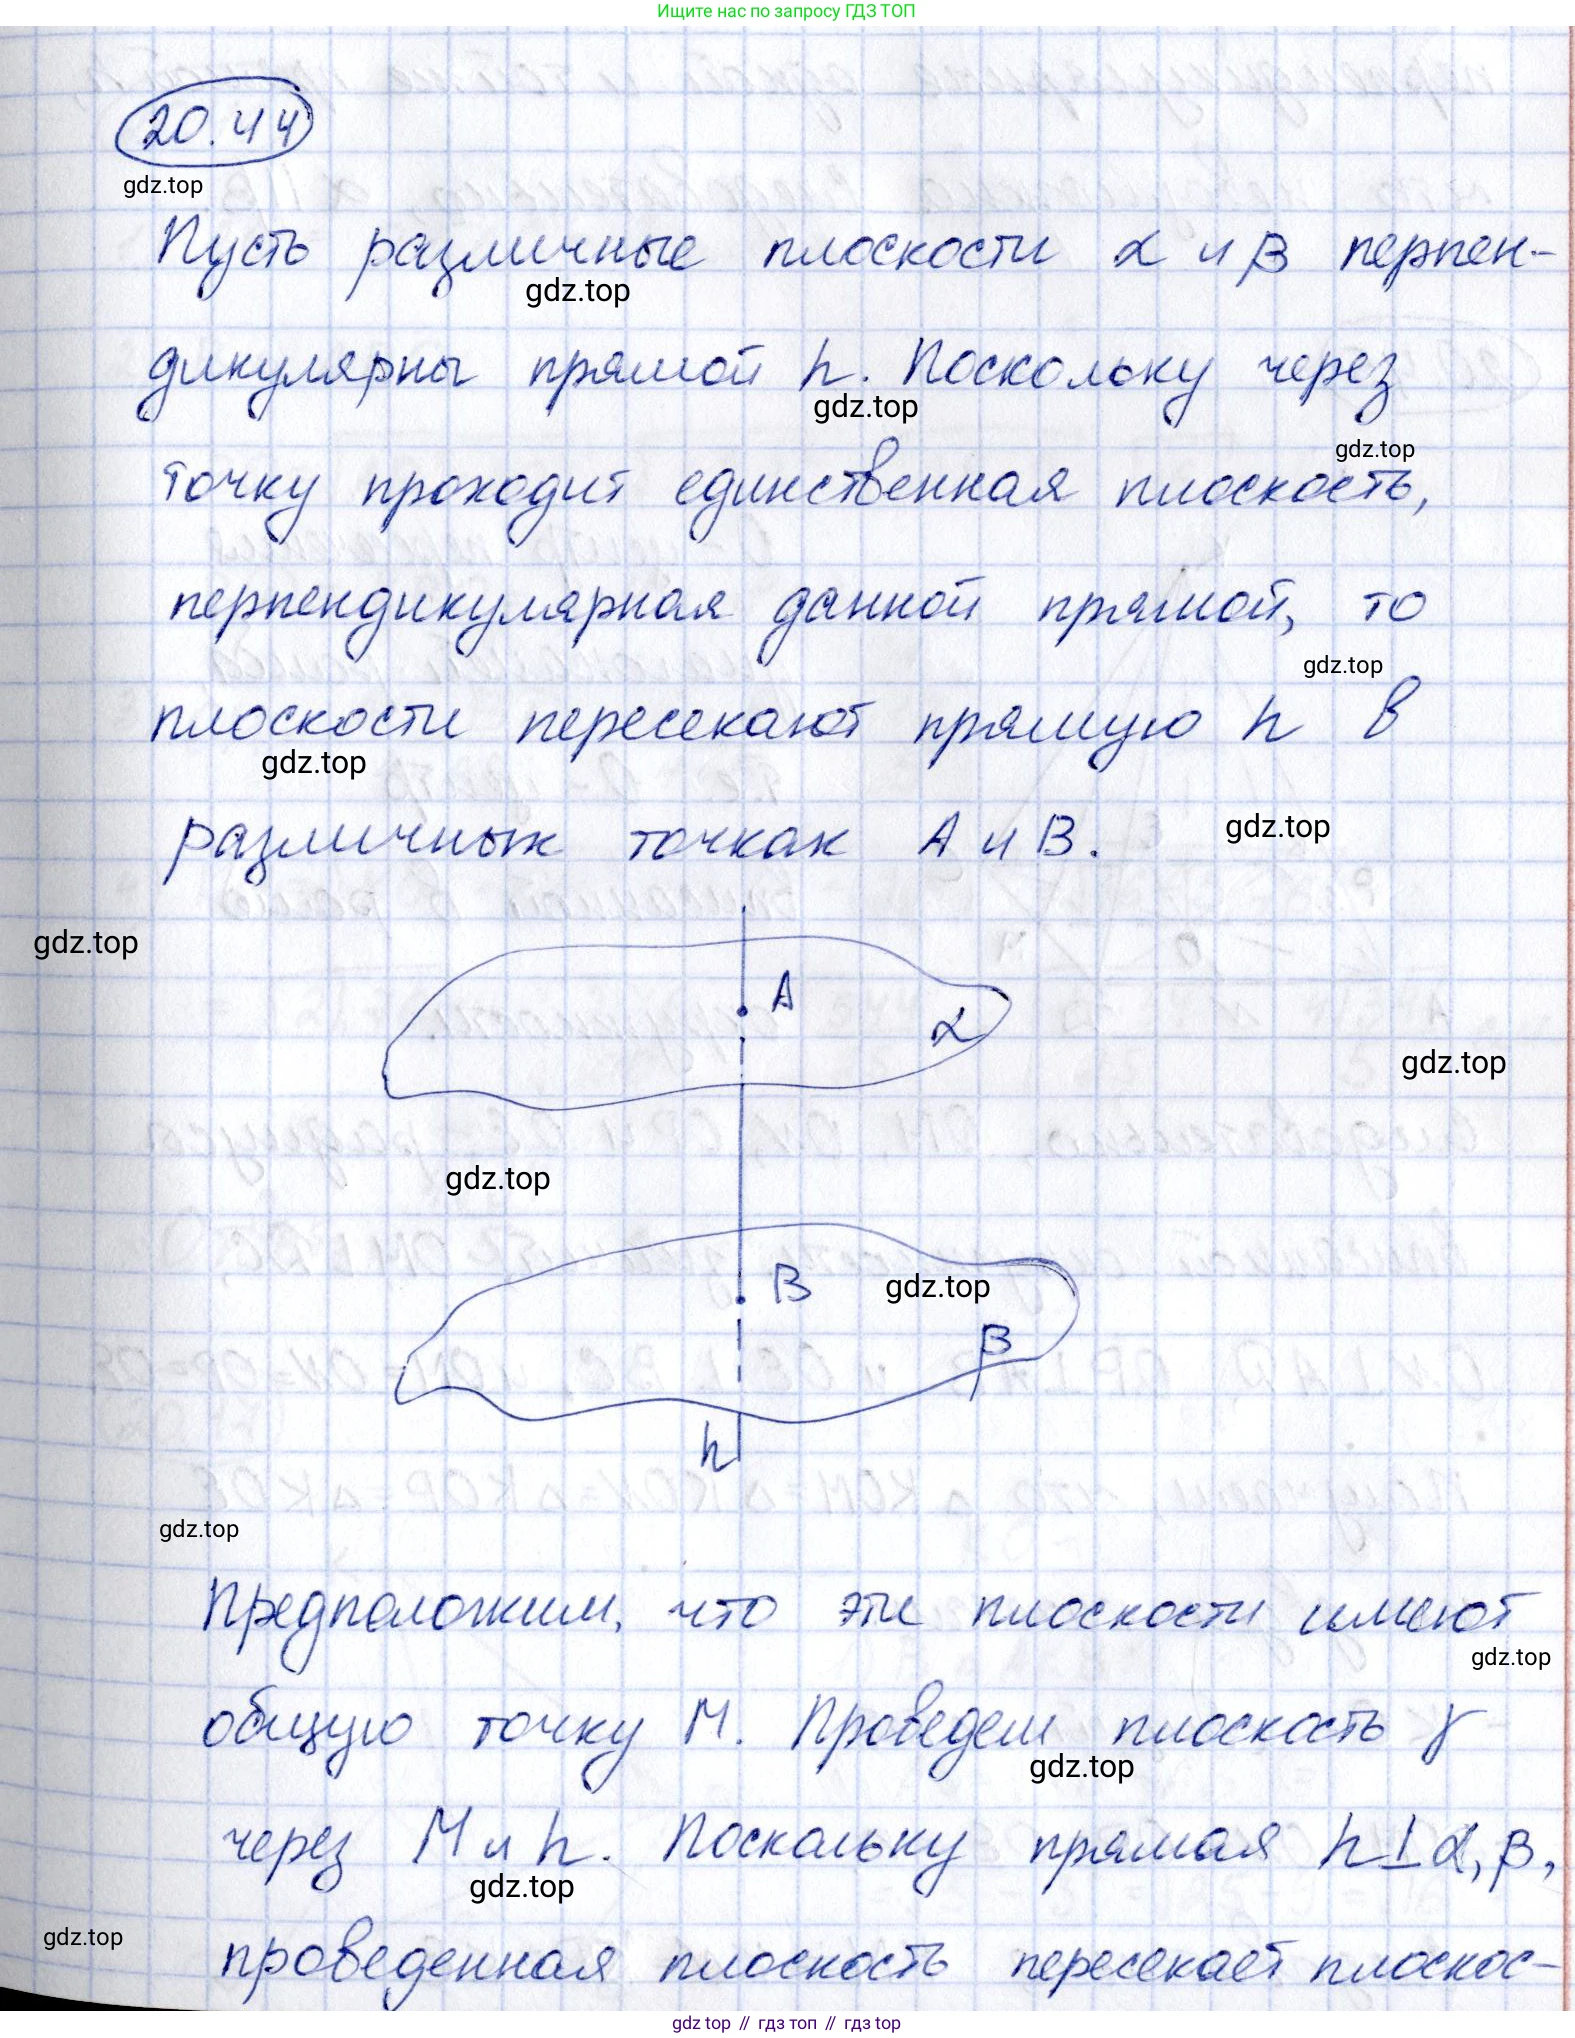 Ищите нас по запросу ГДЗ ТОП
20.44
gdz.top
Пусть различные плоскости α и β перпен-
gdz.top
дикулярны прямой h. Поскольку через
gdz.top
gdz.top
точку проходит единственная плоскость,
перпендикулярная данной прямой, то
gdz.top
плоскости пересекают прямую h в
gdz.top
различных точках A и B.
gdz.top
gdz.top
A
α
gdz.top
gdz.top
B
gdz.top
β
h
gdz.top
Предположим, что эти плоскости имеют
gdz.top
общую точку M. Проведем плоскость γ
gdz.top
через M и h. Поскольку прямая h⊥α, β,
gdz.top
gdz.top
проведенная плоскость пересекает плоскос-
gdz.top // гдз топ // гдз top